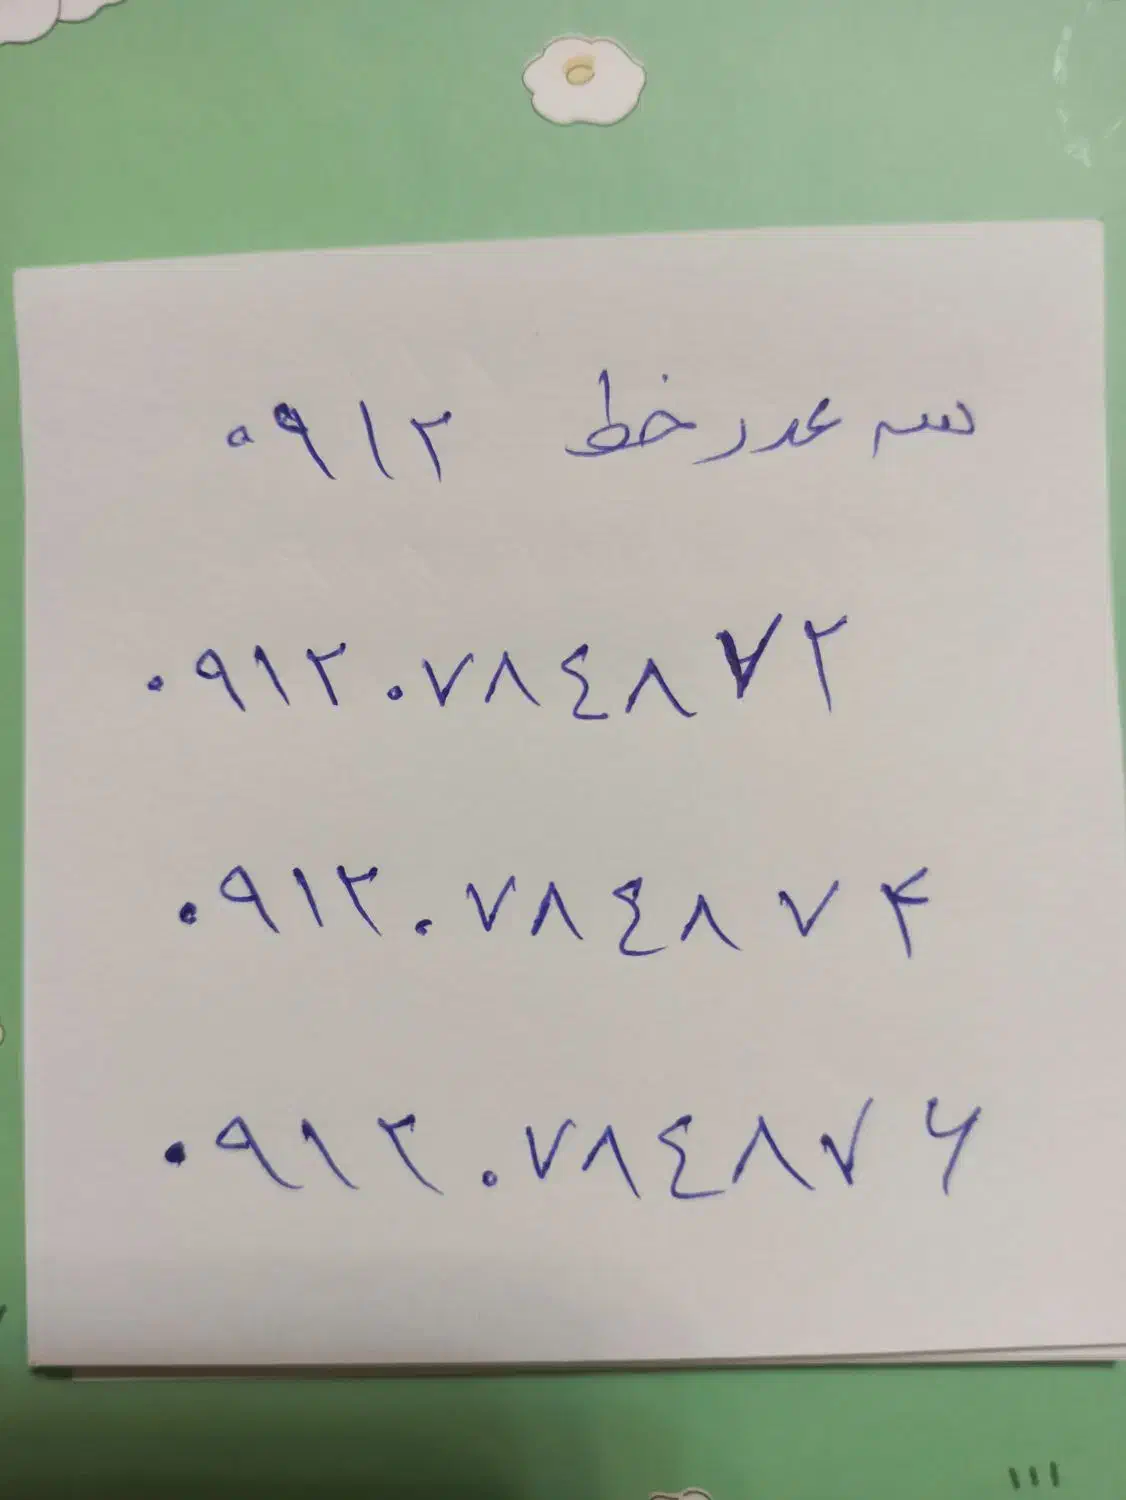 سه عدد خط ۰۹۱۲
۰۹۱۲۰۷۸٤۸۷۲
۰۹۱۲۰۷۸٤۸۷۴
۰۹۱۲۰۷۸٤۸۷۶
۱۱۱